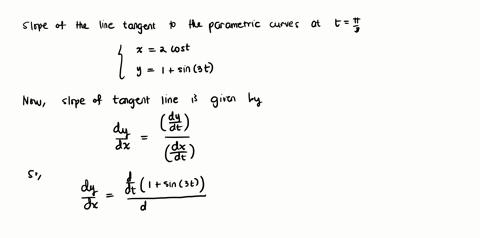 Slope of the line tangent to the parametric curves at t = π/3
{ x = 2 cost
y = 1 + sin(3t)
Now, slope of tangent line is given by
dy/dx = (dy/dt) / (dx/dt)
So,
dy/dx = d/dt (1 + sin(3t)) / d